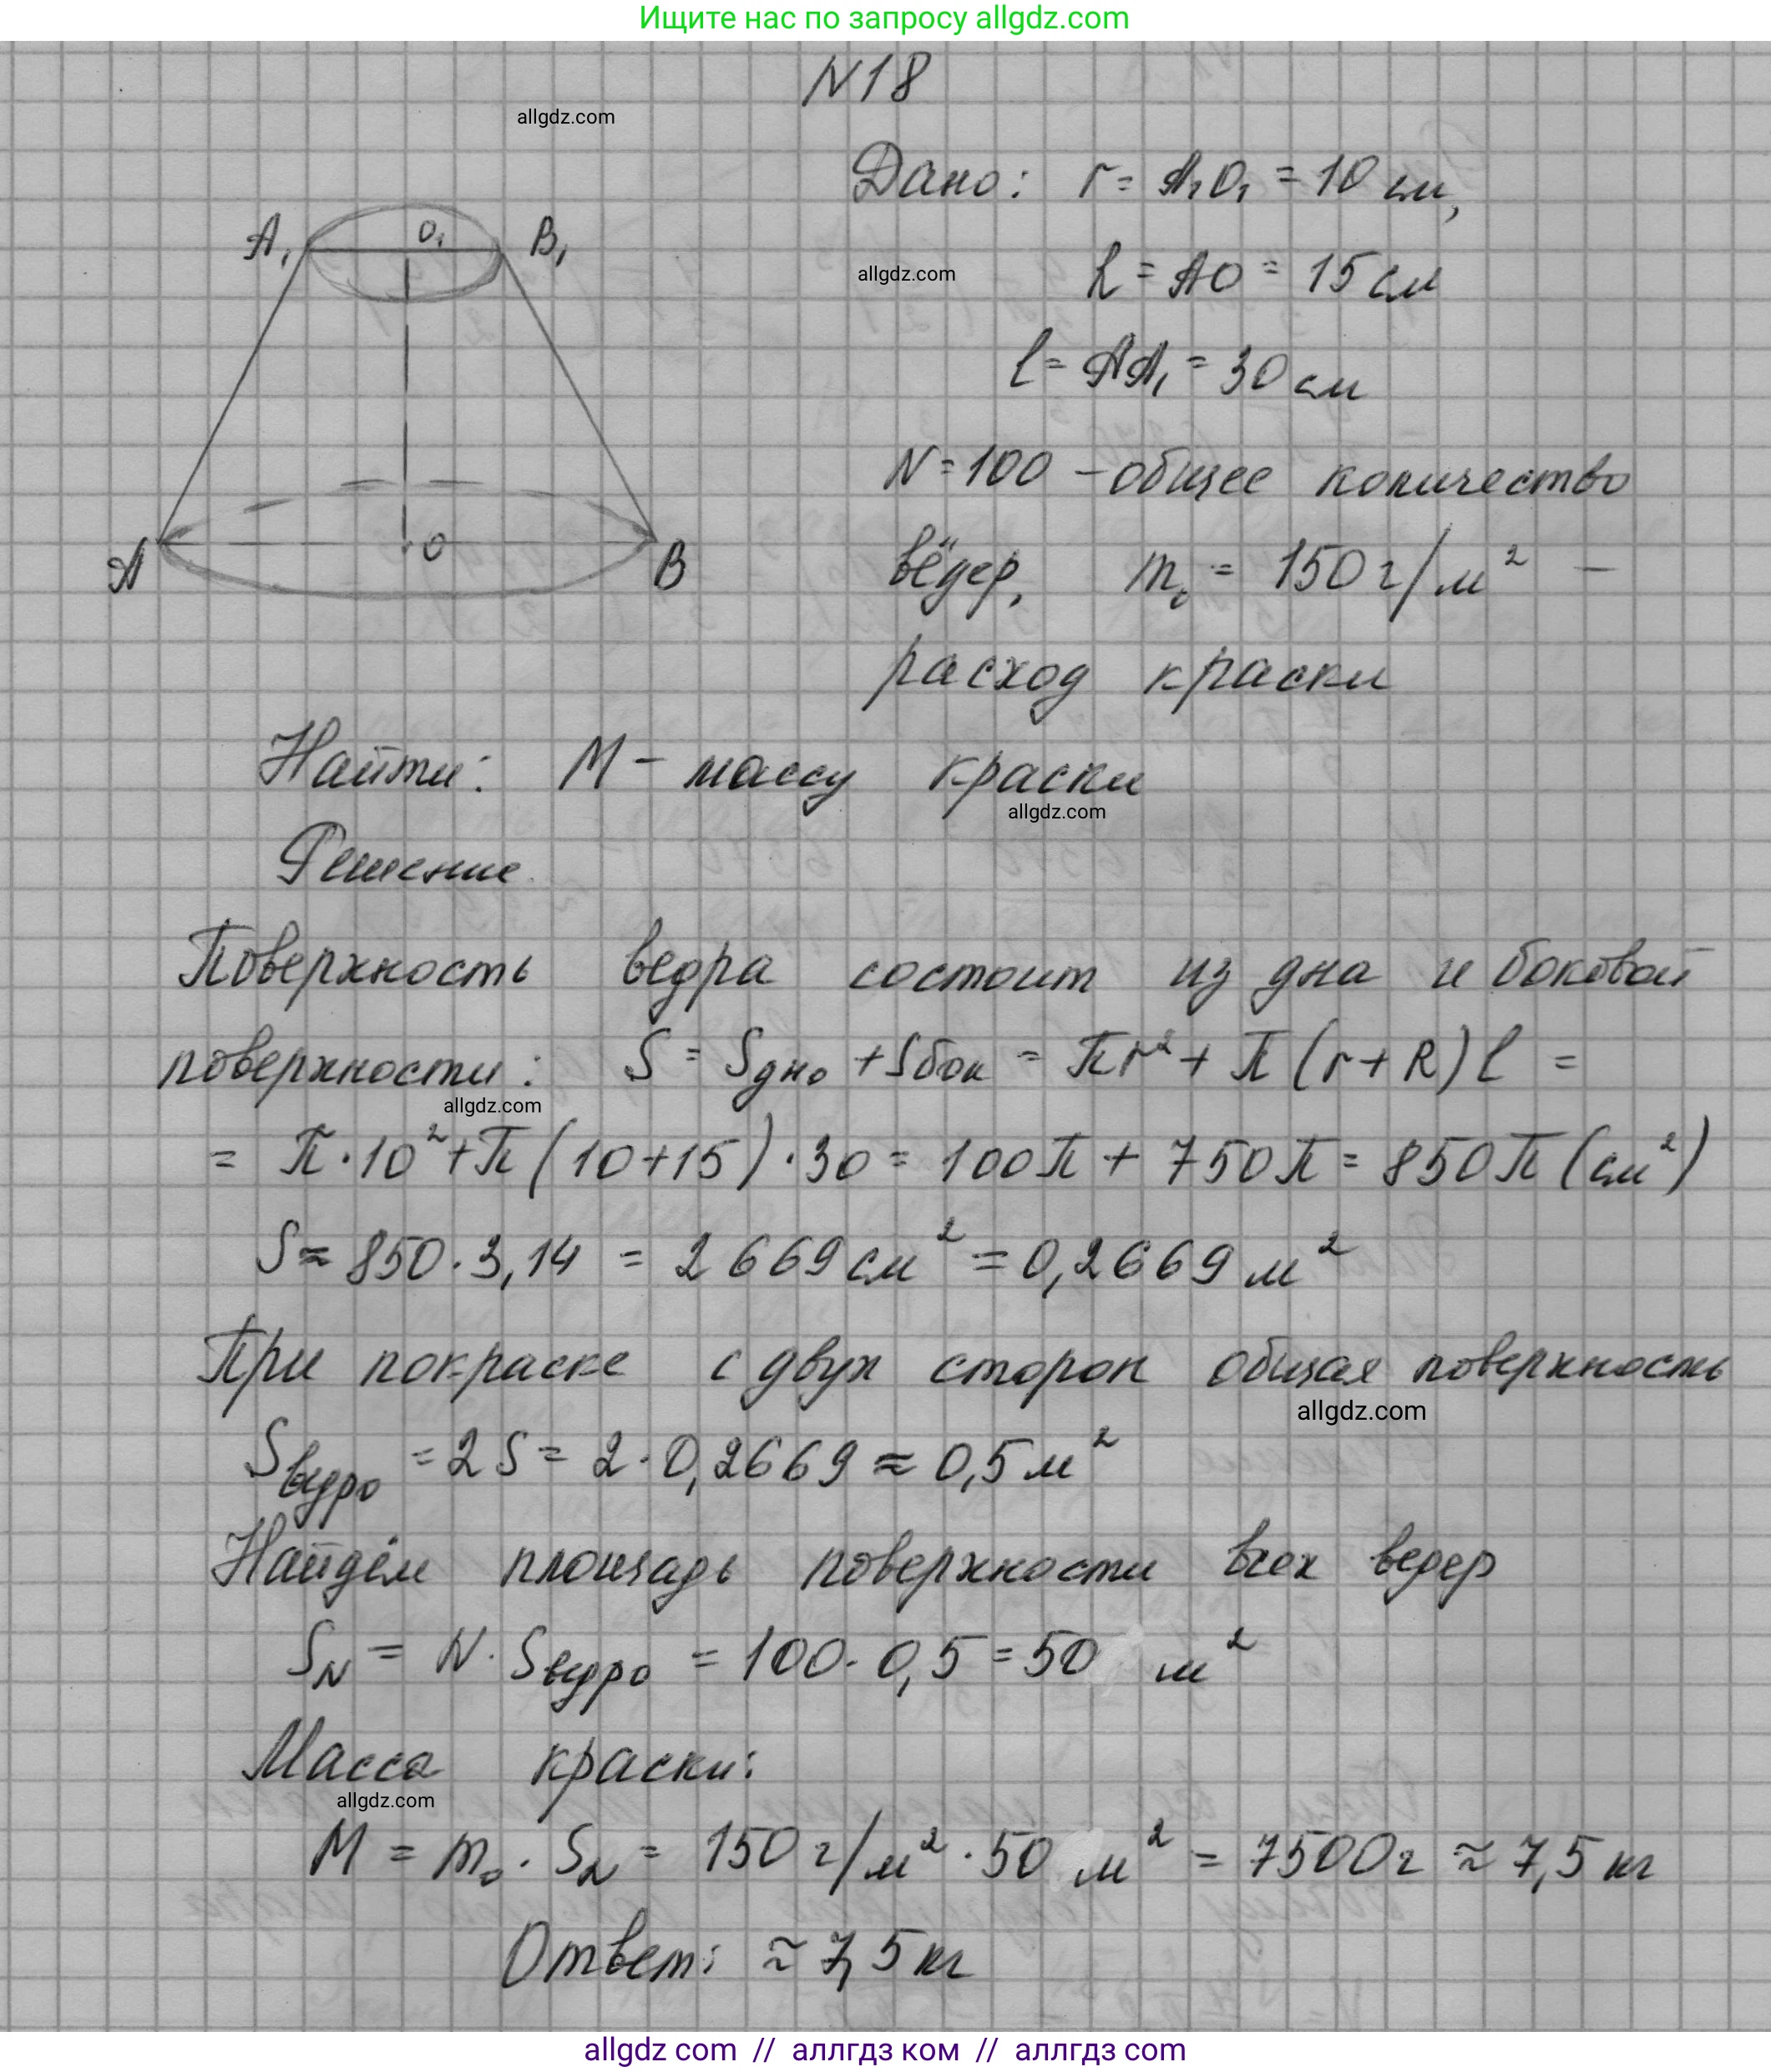 Ищите нас по запросу allgdz.com
N18
allgdz.com
Дано: r = A₁O₁ = 10 см,
A₁ O₁ B₁
allgdz.com
R = AO = 15 см
l = AA₁ = 30 см
N = 100 – общее количество
A O B
вёдер, m₀ = 150 г/м² –
расход краски
Найти: M – массу краски
allgdz.com
Решение.
Поверхность ведра состоит из дна и боковой
поверхности: S = Sдно + Sбок = πr² + π(r + R)l =
allgdz.com
= π·10² + π(10+15)·30 = 100π + 750π = 850π (см²)
S ≈ 850·3,14 = 2669 см² = 0,2669 м²
При покраске с двух сторон общая поверхность
allgdz.com
Sведро = 2S = 2·0,2669 ≈ 0,5 м²
Найдём площадь поверхности всех ведер
S_N = N·Sведро = 100·0,5 = 50 м²
Масса краски:
allgdz.com
M = m₀·S_N = 150 г/м²·50 м² = 7500г ≈ 7,5 кг
Ответ: ≈ 7,5 кг
allgdz com // аллгдз ком // аллгдз com